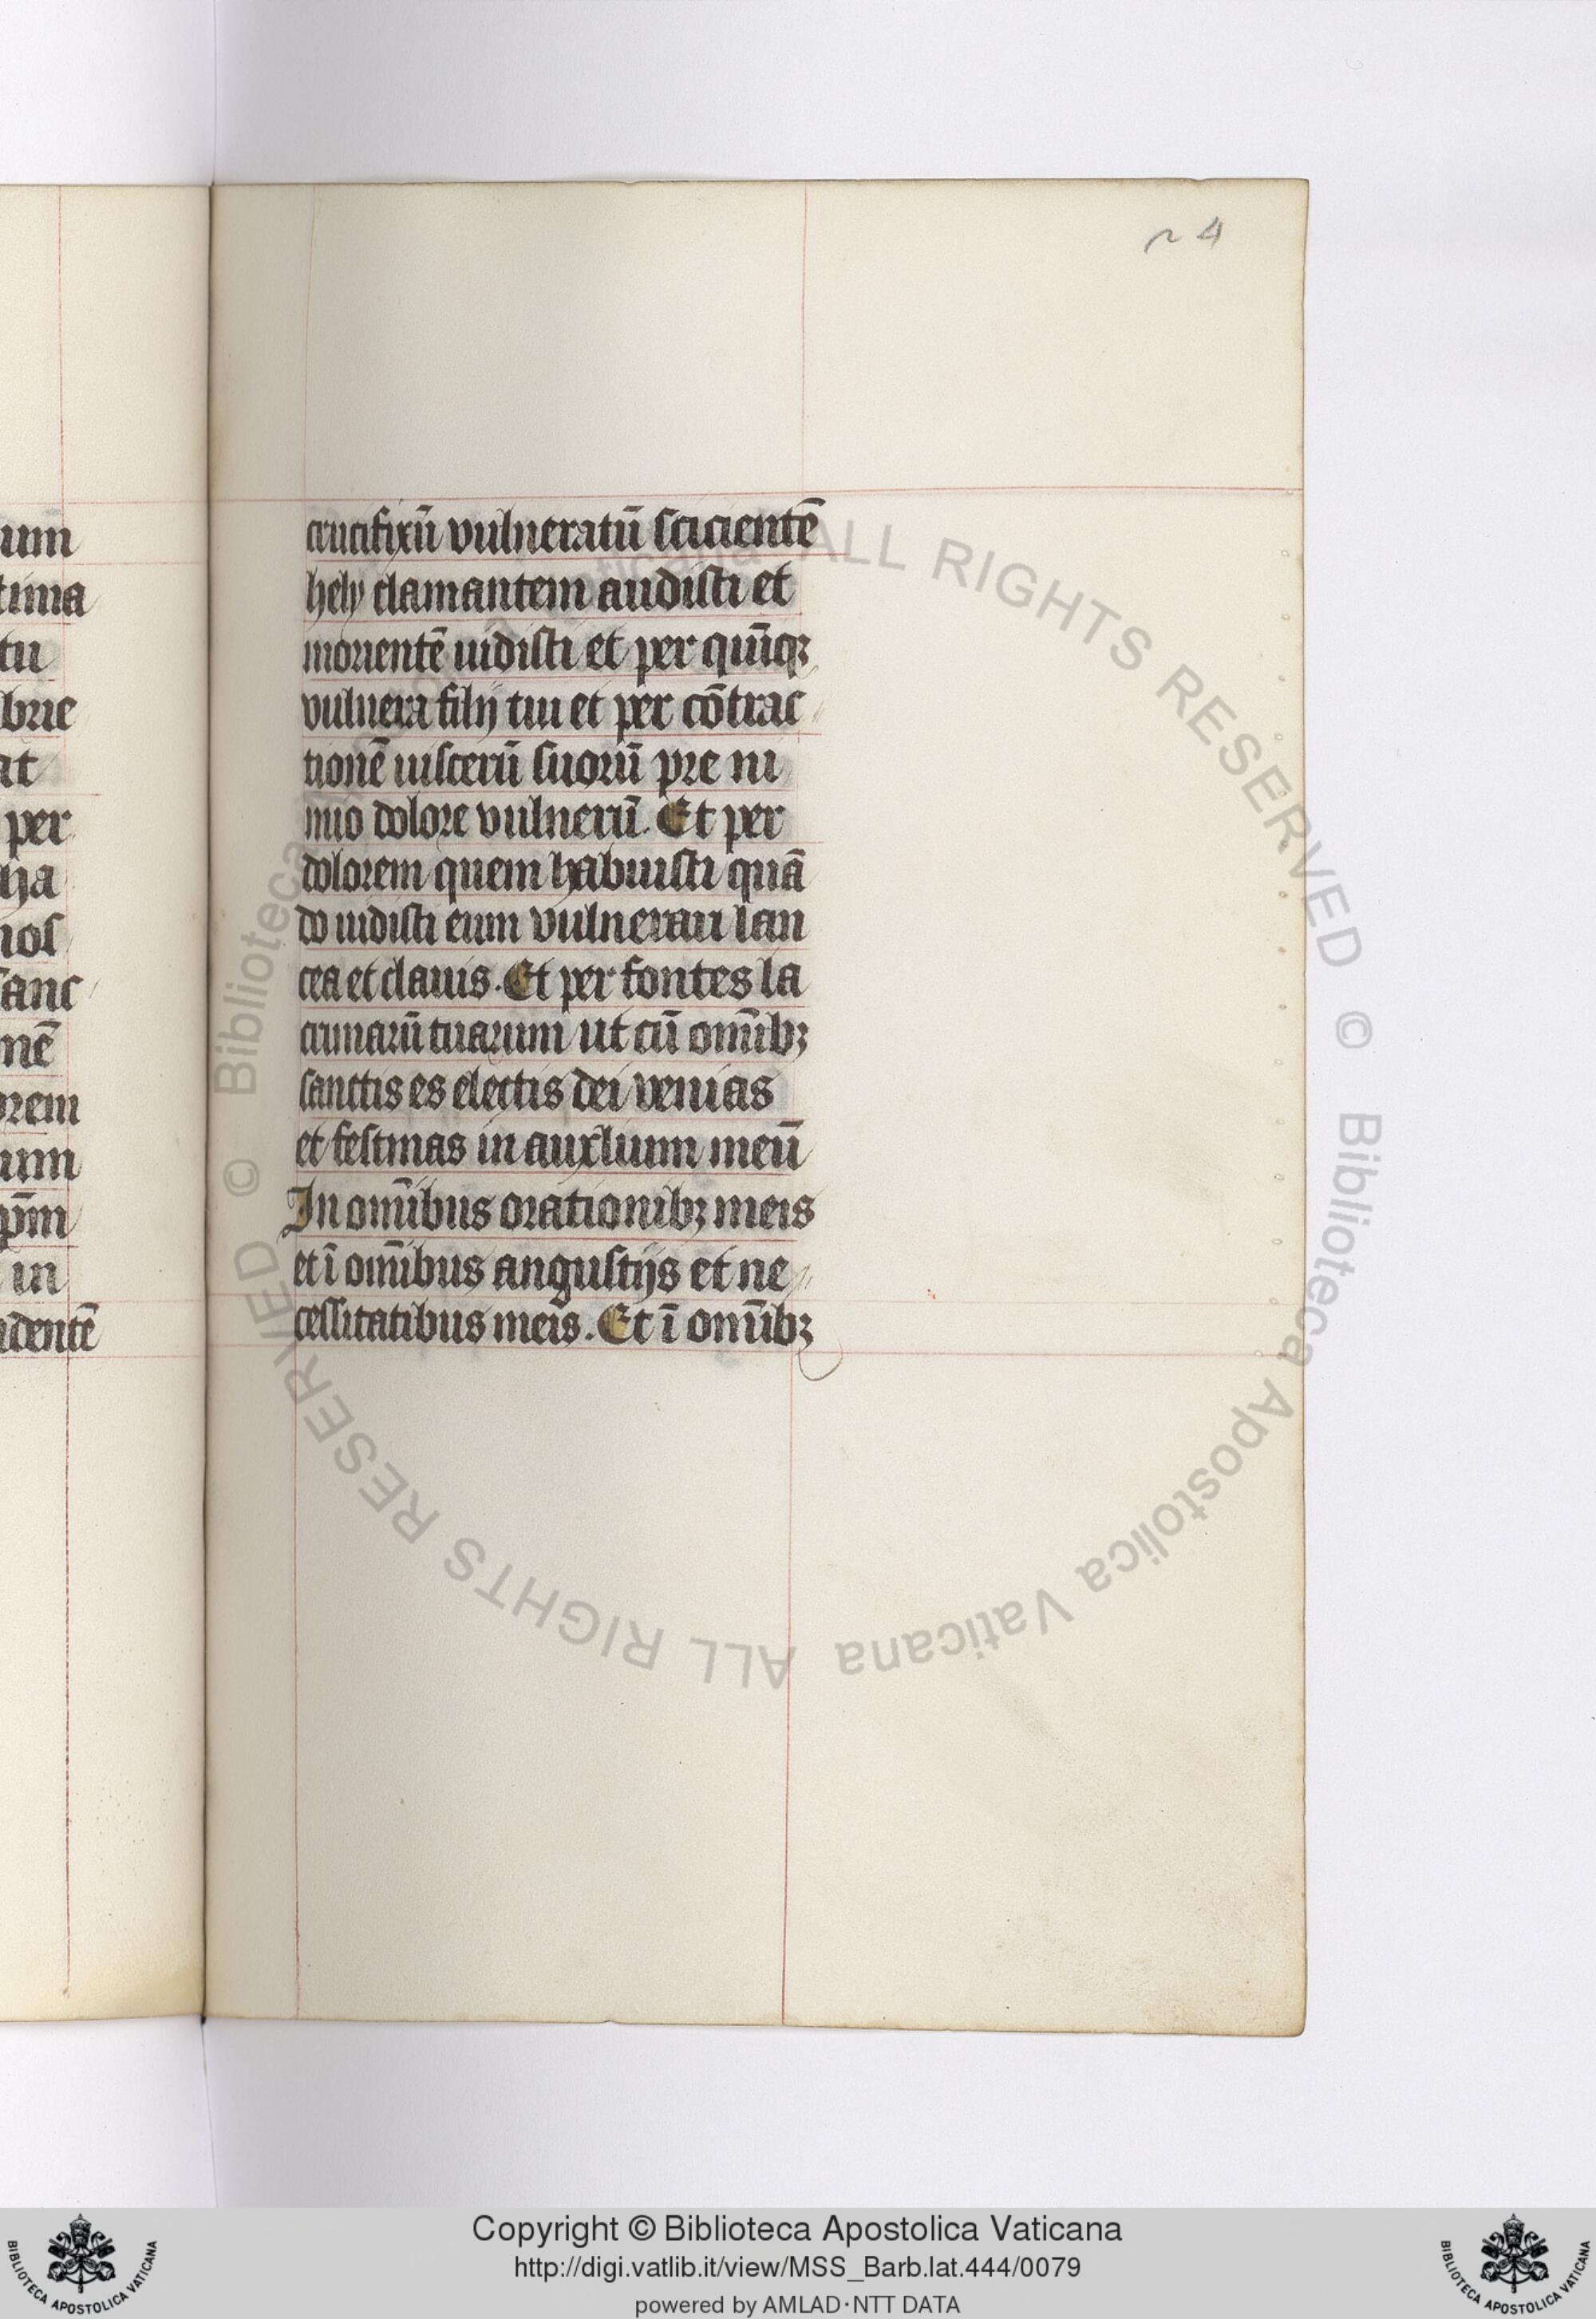 24
um
tima
tu
brie
at
per
ha
nos
sanc
nē
orem
um
pm̄
in
dentē
crucifixū vulneratū scicientē
hely clamantem audisti et
morientē uidisti et per quīqꝫ
vulnera filij tui et per cōtrac
tionē uiscerū suorū pre ni
mio dolore vulnerū. Et per
dolorem quem habuisti quā
do uidisti eum vulnerari lan
cea et clauis. Et per fontes la
crimarū tuarum ut cū omībꝫ
sanctis es electis dei venias
et festinas in auxlium meū
In omībus orationibꝫ meis
et ī omībus angustijs et ne
cessitatibus meis. Et ī omībꝫ
© Biblioteca Apostolica Vaticana ALL RIGHTS RESERVED
© Biblioteca Apostolica Vaticana ALL RIGHTS RESERVED
Copyright © Biblioteca Apostolica Vaticana
http://digi.vatlib.it/view/MSS_Barb.lat.444/0079
powered by AMLAD·NTT DATA
BIBLIOTECA APOSTOLICA VATICANA
BIBLIOTECA APOSTOLICA VATICANA